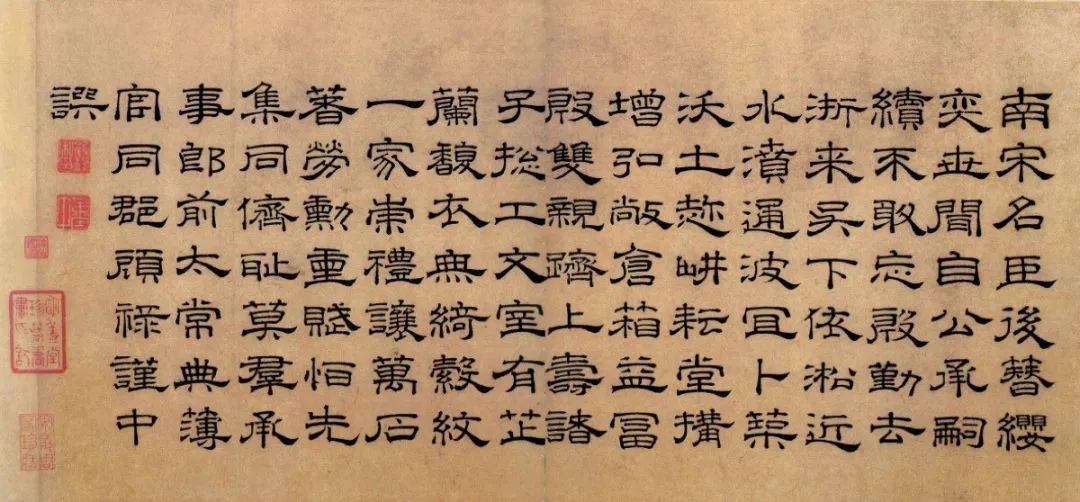 南宋名臣後簪纓
奕世聞自公承嗣
續不敢忘殷勤去
浙来吴下依淞近
水濆通波冝卜築
沃土趂畊耘堂搆
增弘敞倉箱益冨
殷雙親躋上壽諸
子捴工文室有芷
蘭馥衣無綺縠紋
一家崇禮讓萬石
著勞勳重賦怕先
集同儕耻莫羣承
事郎前太常典簿
官同郡顧祿謹中
譔